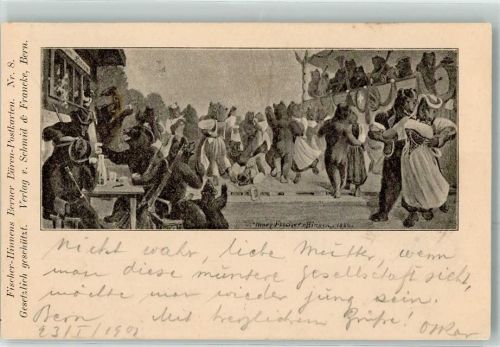 Fischer-Hinnens Berner Bären-Postkarten. Nr. 8.
Gesetzlich geschützt. Verlag v. Schmid & Francke, Bern.
Nicht wahr, liebe Mutter, wenn
man diese muntere Gesellschaft sieht,
möchte man wieder jung sein.
Bern Mit herzlichem Grüße!
23/I/1901 Oskar